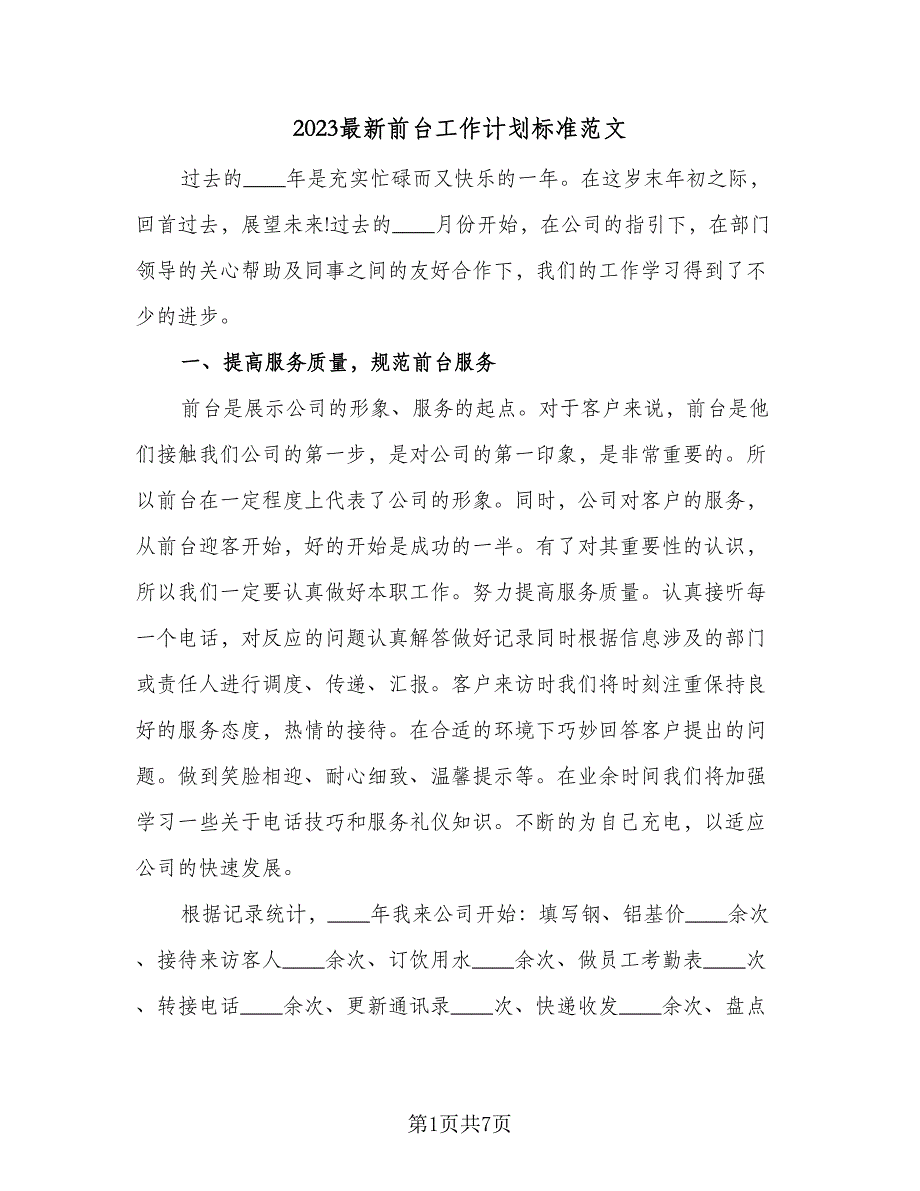 2023最新前台工作计划标准范文
过去的____年是充实忙碌而又快乐的一年。在这岁末年初之际，
回首过去，展望未来!过去的____月份开始，在公司的指引下，在部门
领导的关心帮助及同事之间的友好合作下，我们的工作学习得到了不
少的进步。
一、提高服务质量，规范前台服务
前台是展示公司的形象、服务的起点。对于客户来说，前台是他
们接触我们公司的第一步，是对公司的第一印象，是非常重要的。所
以前台在一定程度上代表了公司的形象。同时，公司对客户的服务，
从前台迎客开始，好的开始是成功的一半。有了对其重要性的认识，
所以我们一定要认真做好本职工作。努力提高服务质量。认真接听每
一个电话，对反应的问题认真解答做好记录同时根据信息涉及的部门
或责任人进行调度、传递、汇报。客户来访时我们将时刻注重保持良
好的服务态度，热情的接待。在合适的环境下巧妙回答客户提出的问
题。做到笑脸相迎、耐心细致、温馨提示等。在业余时间我们将加强
学习一些关于电话技巧和服务礼仪知识。不断的为自己充电，以适应
公司的快速发展。
根据记录统计，____年我来公司开始：填写钢、铝基价____余次
、接待来访客人____余次、订饮用水____余次、做员工考勤表____次
、转接电话____余次、更新通讯录____次、快递收发____余次、盘点
第1页共7页